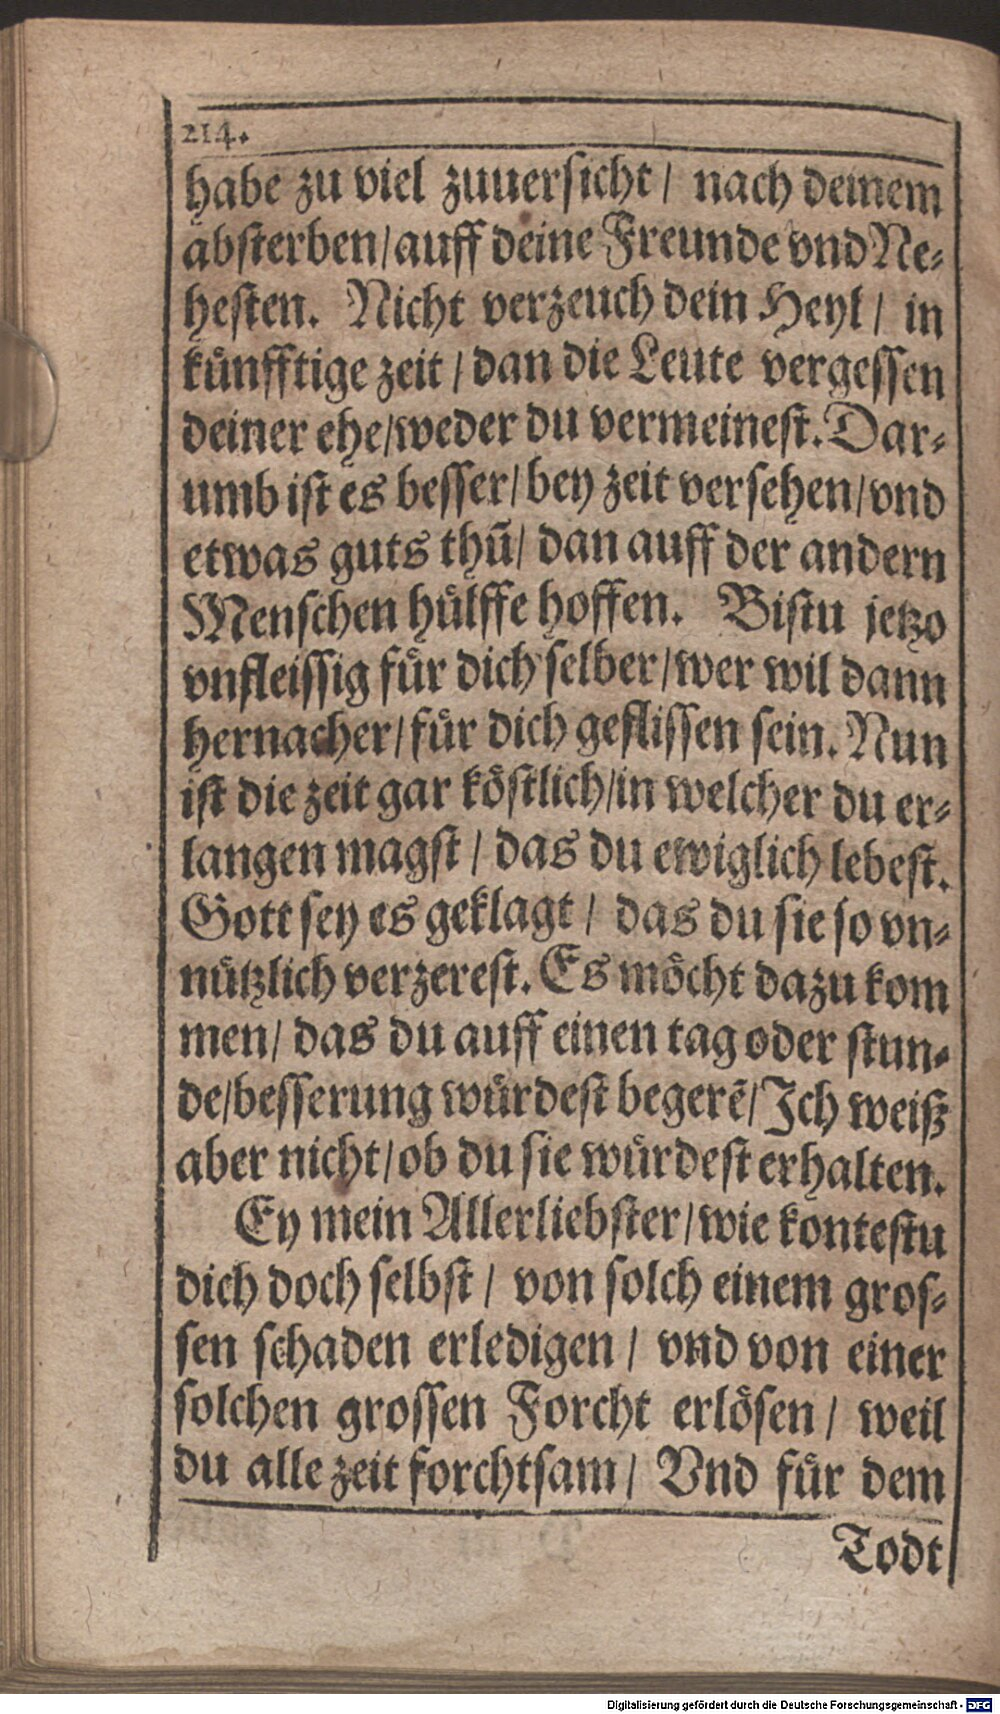 214.
habe zu viel zuuersicht / nach deinem
absterben/auff deine Freunde vnd Ne⸗
hesten. Nicht verzeuch dein Heyl / in
kuͤnfftige zeit / dan die Leute vergessen
deiner ehe/weder du vermeinest. Dar⸗
umb ist es besser/bey zeit versehen/vnd
etwas guts thū/ dan auff der andern
Menschen huͤlffe hoffen. Bistu jetzo
vnfleissig fuͤr dich selber/wer wil dann
hernacher/fuͤr dich geflissen sein. Nun
ist die zeit gar koͤstlich/in welcher du er⸗
langen magst / das du ewiglich lebest.
Gott sey es geklagt / das du sie so vn⸗
nuͤtzlich verzerest. Es moͤcht dazu kom
men/ das du auff einen tag oder stun⸗
de/besserung wuͤrdest begerē/Ich weiß
aber nicht/ob du sie wuͤrdest erhalten.
Ey mein Allerliebster/wie kontestu
dich doch selbst / von solch einem gros⸗
sen schaden erledigen / vnd von einer
solchen grossen Forcht erloͤsen / weil
du alle zeit forchtsam / Vnd fuͤr dem
Todt
Digitalisierung gefördert durch die Deutsche Forschungsgemeinschaft - DFG